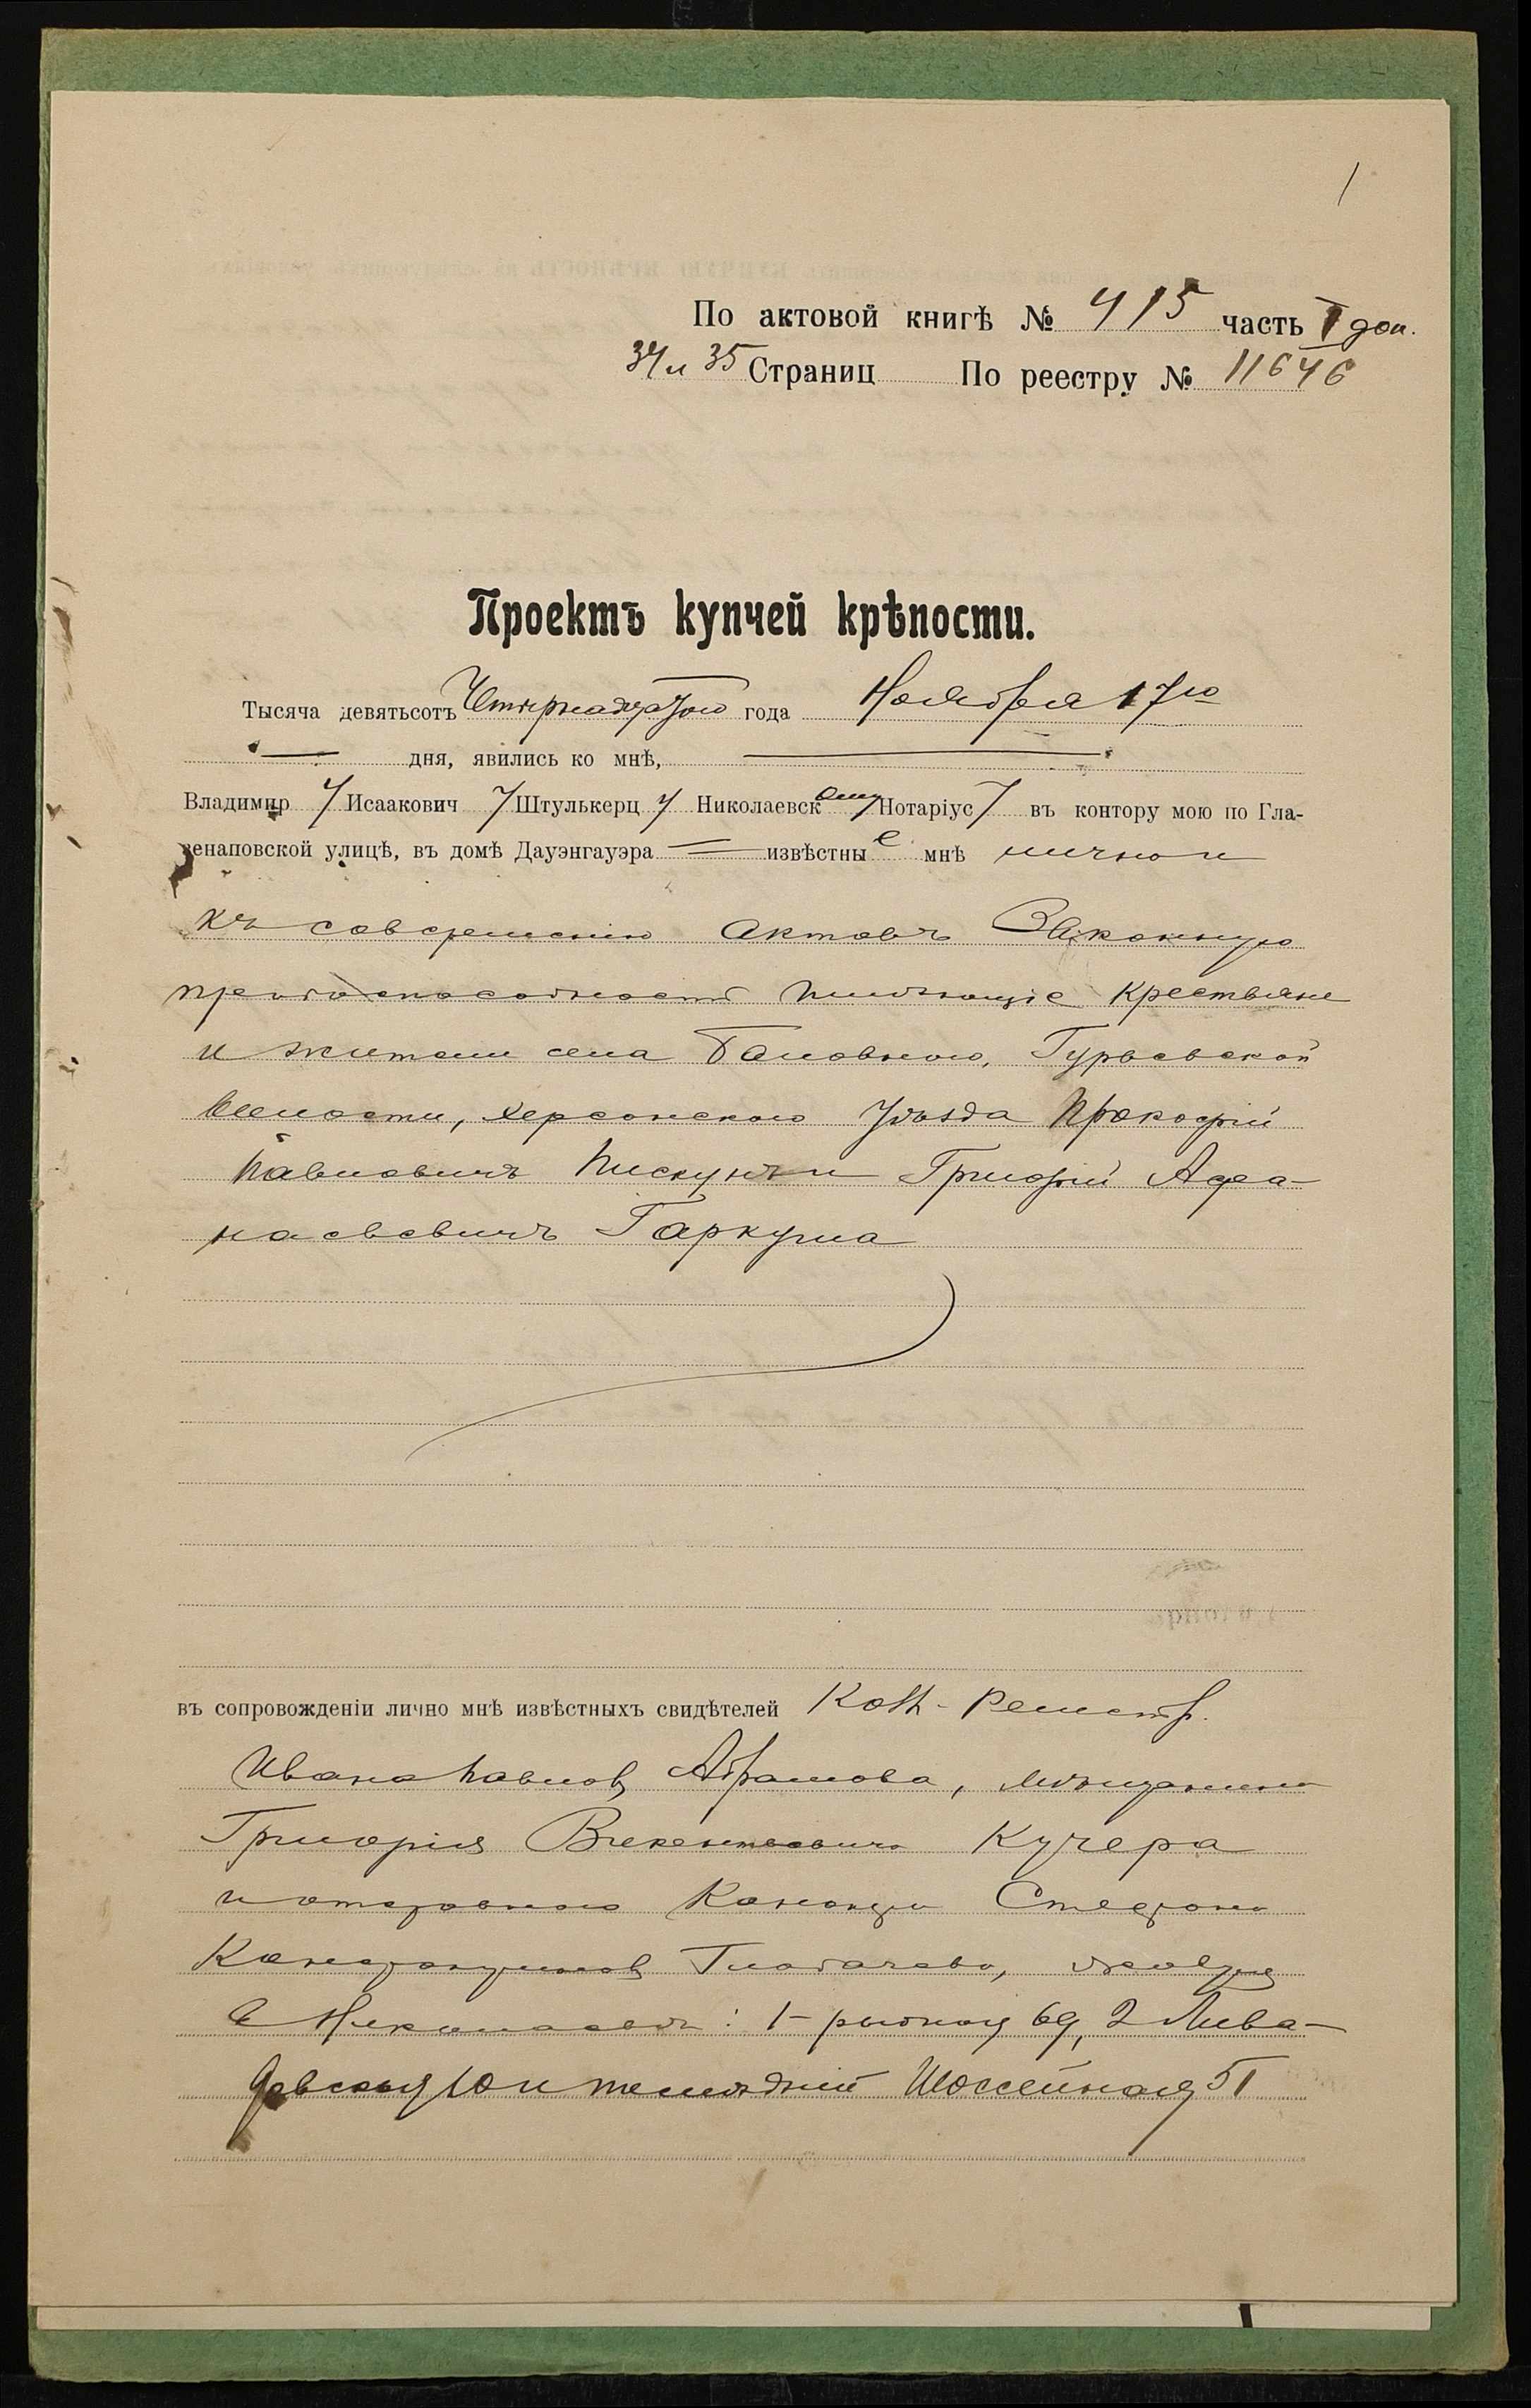 1
По актовой книгѣ № 415 часть I доп.
34 и 35 Страниц По реестру № 11646
Проектъ купчей крѣпости.
Тысяча девятьсотъ Четырнадцатого года Ноября 17го
дня, явились ко мнѣ,
Владимир у Исаакович у Штулькерц у Николаевскому Нотаріус у въ контору мою по Гла-
зенаповской улицѣ, въ домѣ Дауэнгауэра извѣстные мнѣ лично и
къ совершенію актовъ законную
правоспособность имѣющіе крестьяне
и жители села Баловного, Гурьевской
волости, Херсонскаго уѣзда Прокофій
Павловичъ Пискунъ и Григорій Афа-
насьевичъ Гаркуша
въ сопровожденіи лично мнѣ извѣстныхъ свидѣтелей Колл. Регистр.
Ивана Павлов. Абрамова, мѣщанина
Григорія Викентьевича Кучера
и отставного Стефана
Глобачева,
в Николаевѣ: 1- 69, 2 Лива-
дѣвская 10 и Шоссейная 51